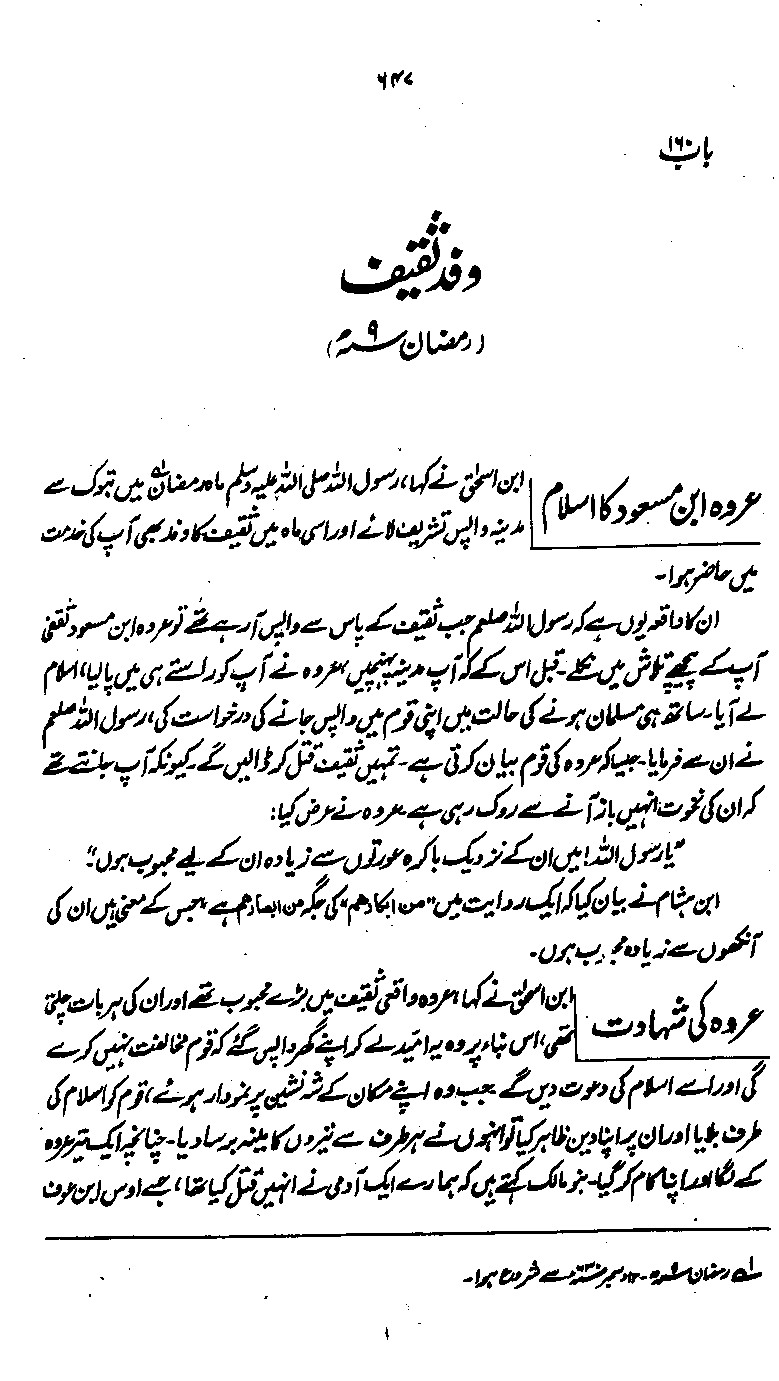 ۶۴۷
باب ۱۶۰
وفد ثقیف
(رمضان ۹ھ)
عروہ ابن مسعود کا اسلام
ابن اسحٰق نے کہا، رسول اللہ صلی اللہ علیہ وسلم ماہ رمضان ۱؎ میں تبوک سے
مدینہ واپس تشریف لائے اور اسی ماہ میں ثقیف کا وفد بھی آپ کی خدمت
میں حاضر ہوا۔
ان کا واقعہ یوں ہے کہ رسول اللہ صلعم جب ثقیف کے پاس سے واپس آ رہے تھے تو عروہ ابن مسعود ثقفی
آپ کے پیچھے تلاش میں نکلے۔ قبل اس کے کہ آپ مدینہ پہنچیں، عروہ نے آپ کو راستے ہی میں پا لیا، اسلام
لے آیا۔ ساتھ ہی مسلمان ہونے کی حالت میں اپنی قوم میں واپس جانے کی درخواست کی، رسول اللہ صلعم
نے ان سے فرمایا۔ جیسا کہ عروہ کی قوم بیان کرتی ہے۔ تمہیں ثقیف قتل کر ڈالیں گے۔ کیونکہ آپ جانتے تھے
کہ ان کی نخوت انہیں باز آنے سے روک رہی ہے۔ عروہ نے عرض کیا:
"یا رسول اللہ! میں ان کے نزدیک باکرہ عورتوں سے زیادہ ان کے لیے محبوب ہوں"۔
ابن ہشام نے بیان کیا کہ ایک روایت میں "من ابکارھم" کی جگہ من ابصارھم ہے، جس کے معنی ہیں ان کی
آنکھوں سے زیادہ محبوب ہوں۔
عروہ کی شہادت
ابن اسحٰق نے کہا، عروہ واقعی ثقیف میں بڑے محبوب تھے اور ان کی ہر بات چلتی
تھی، اس بناء پر وہ یہ امید لے کر اپنے گھر واپس گئے کہ قوم مخالفت نہیں کرے
گی اور اسے اسلام کی دعوت دیں گے جب وہ اپنے مکان کے شہ نشین پر نمودار ہوئے، قوم کو اسلام کی
طرف بلایا اور ان پر اپنا دین ظاہر کیا تو انہوں نے ہر طرف سے تیروں کا مینہ برسا دیا۔ چنانچہ ایک تیر عروہ
کے لگا اور اپنا کام کر گیا۔ بنو مالک کہتے ہیں کہ ہمارے ایک آدمی نے انہیں قتل کیا تھا، جسے اوس ابن عوف
۱؎ رمضان ۹ھ۔ دسمبر ۶۳۰ء سے شروع ہوا۔